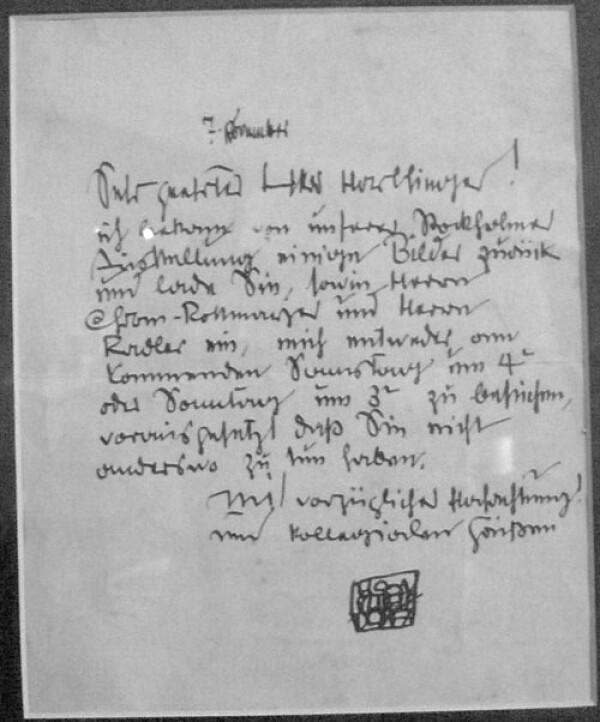 7. November
Sehr geehrter Harlfinger!
ich bekam von unserer Stockholmer
Ausstellung einige Bilder zurück
und lade Sie, sowie Herrn
Ehrn-Rottmayer und Herrn
Radler ein, mich entweder am
kommenden Samstag um 4h
oder Sonntag um 3h zu besuchen,
vorausgesetzt daß Sie nicht
anderswo zu tun haben.
Mit vorzüglicher Hochachtung!
und kollegialen Grüßen
EGON